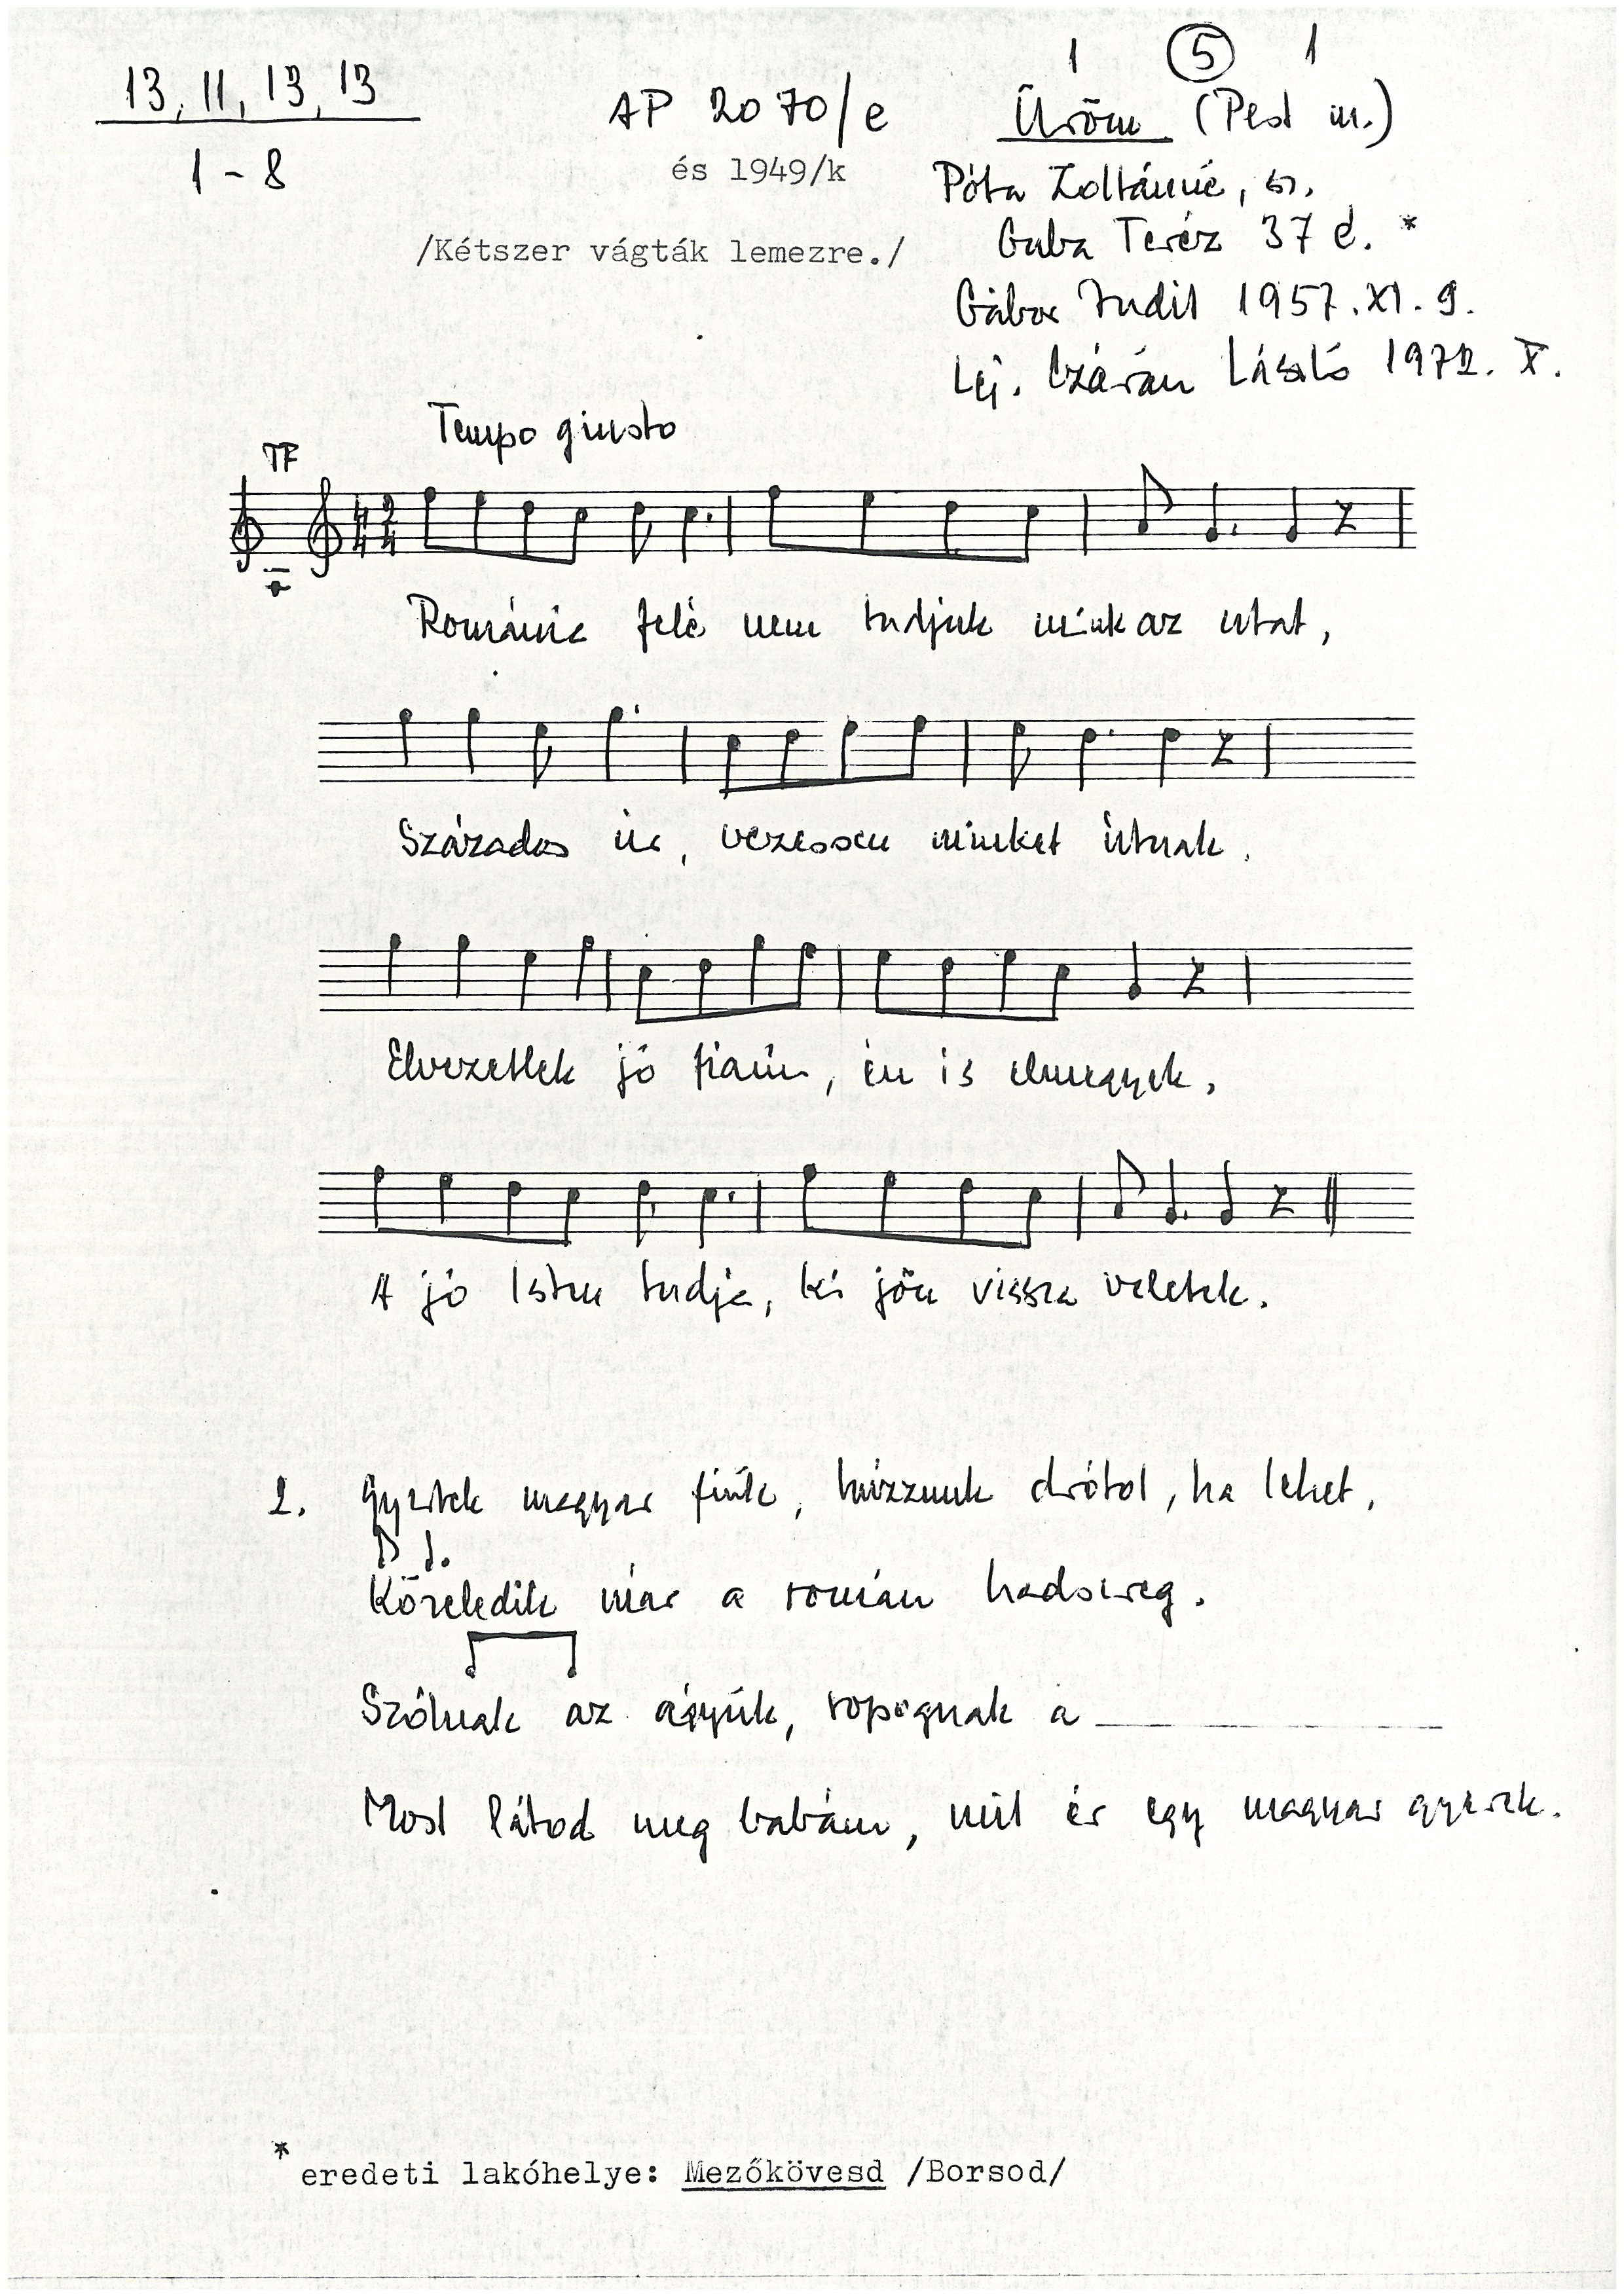 1 5 1
13, 11, 13, 13
1 - 8
AP 2070/e
és 1949/k
/Kétszer vágták lemezre./
Üröm (Pest m.)
Póta Zoltánné, sz.
Guba Teréz 37 é. *
Gábor Judit 1957. XI. 9.
Lej. Czárán László 1972. X.
Tempo giusto
TF
Románia felé nem tudjuk mink az utat,
Százados úr, vezessen minket útnak.
Elvezetlek jó fiaim, én is elmegyek,
A jó Isten tudja, ki jön vissza veletek.
2. Gyertek magyar fiúk, húzzunk drótot, ha lehet,
Közeledik már a román hadsereg.
Szólnak az ágyúk, ropognak a
Most látod meg babám, mit ér egy magyar gyerek.
* eredeti lakóhelye: Mezőkövesd /Borsod/